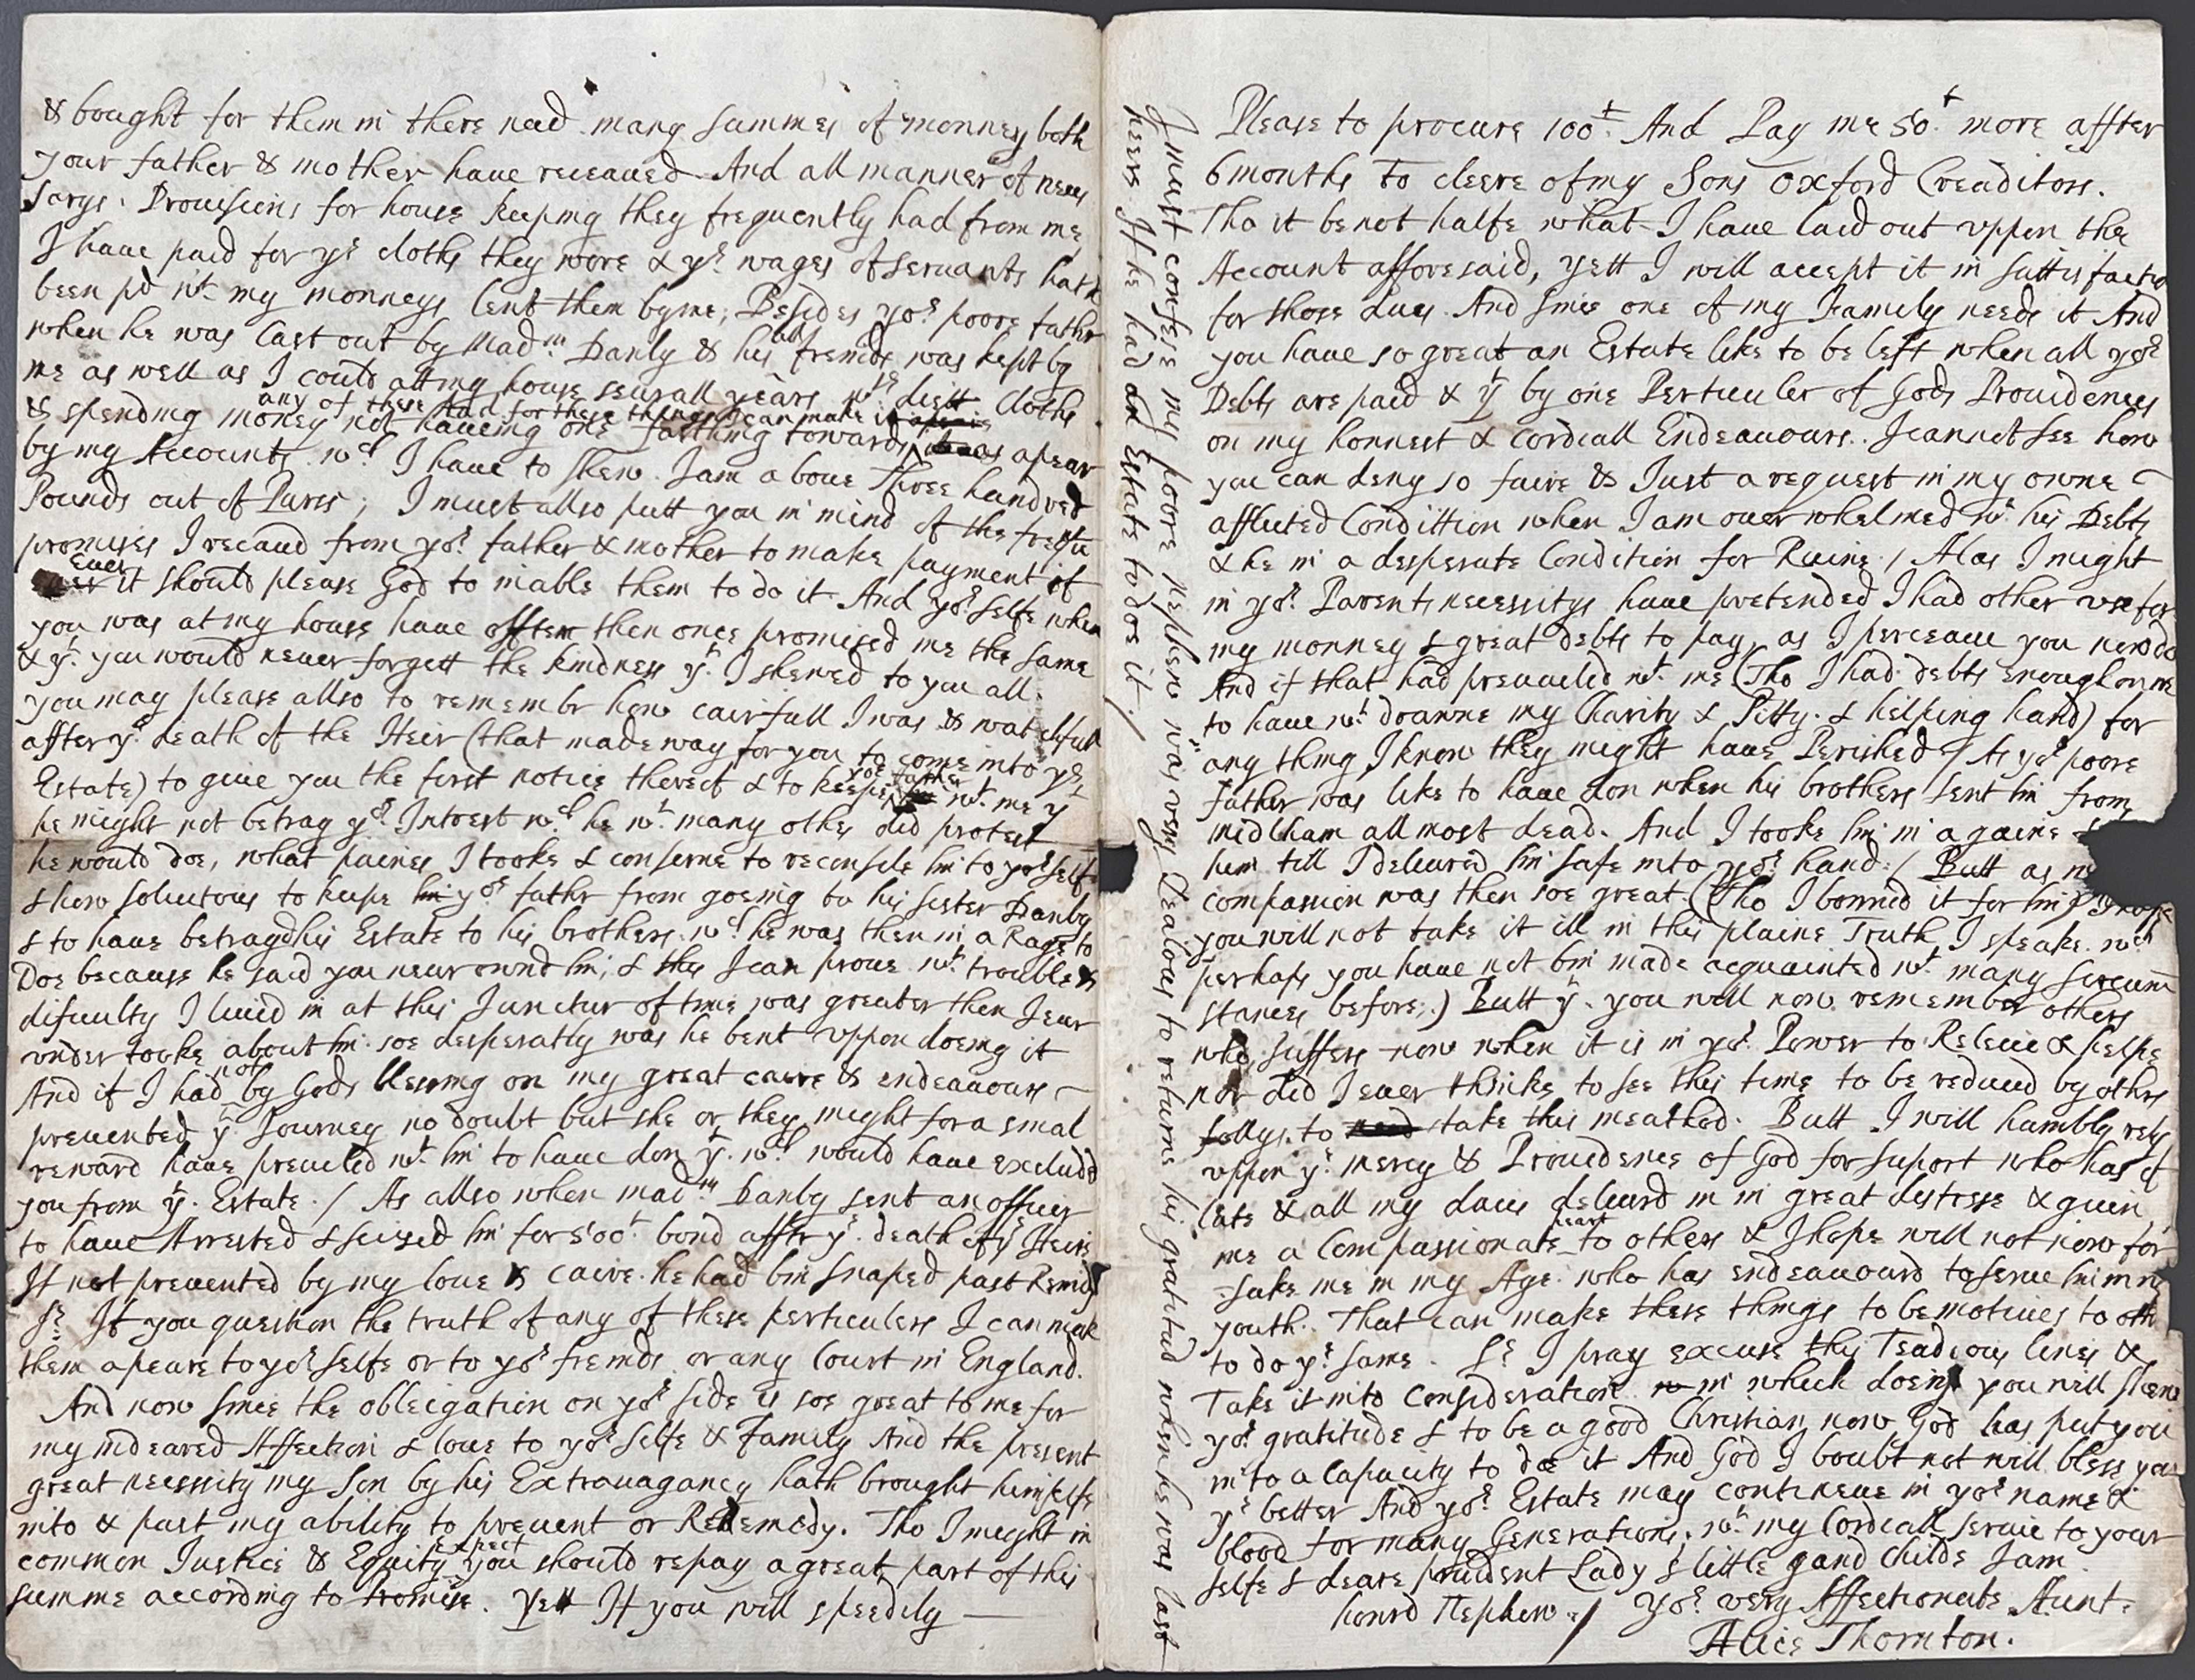 & bought for them in there need many summes of monney both
your father & mother have receaued And all manner of neces
sarys. Prouisions for house keeping they frequently had from me
I haue paid for yr cloths they wore & ye wages of seruants hath
been pd wt my monneys lent them by me; Besides yor poore father
when he was Cast out by Madm Danby & all his freinds was kept by
me as well as I could att my house seurall years wth diett Cloths
& spending money not haueing one farthing towards
any of these had for these things can make it
by my Accounts wch I haue to shew. I am aboue Three hundred
Pounds out of Purs; I must allso putt you in mind of the frequ
promises I receaud from yor father & mother to make payment if
Euer it should please God to inable them to do it And yor selfe when
you was at my house haue offten then once promised me the same
& yt you would neuer forgett the kindness yt I shewed to you all.
you may please allso to remembr how cairfull I was & watchfull
affter ye death of the Heir (that made way for you to come into ye
Estate) to giue you the first notice thereof & to keepe yor father wt me yt
he might not betray yor Intrest wch he wt many othes did protest
he would doe, what paines I tooke & conserne to reconsile him to yor selfe
& how solicitous to keepe him yor fathr from goeing to his sister Danby
& to haue betrayd his Estate to his brothers wch he was then in a Rage to
Doe because he said you neur ownd him; & this I can proue wt trouble &
dificulty I liued in at this Junctur of time was greater then I eur
vnder tooke about him soe desperatly was he bent vppon doeing it
And if I had not by Gods blessing on my great caire & endeauours
preuented yt Journey no doubt but she or they might for a smal
reward haue preuiled wt him to haue don yt wch would haue excludd
you from yt Estate. / As allso when madm Danby sent an officer
to haue Arrested & seized him for 500l bond afftr ye death of ye Heire
If not preuented by my loue & caire he had bin snaped past Remidy
Sr If you question the truth of any of these perticulers I can make
them apeare to yor selfe or to yor freinds or any Court in England.
And now since the obleigation on yor side is soe great to me for
my indeared Affection & loue to yor selfe & Family And the present
great necessity my Son by his Extrauagancy hath brought himselfe
into & past my ability to preuent or Remedy. Tho I might in
common Justice & Equity expect you should repay a great part of this
summe according to promise. Yett If you will speedily
Please to procure 100l And Pay me 50l more affter
6 months To cleere of my Sons Oxford Creaditors.
Tho it be not halfe what I haue laid out vppon the
Account afforesaid, yett I will accept it in sattisfactio
for those dues And since one of my Family needs it And
you haue so great an Estate like to be left when all yor
Debts are paid & yt by one Perticuler of Gods Prouidences
on my honnest & cordiall Endeauours. I cannot see how
you can deny so faire & Just a request in my owne
afflicted Condittion when I am ouer whelmed wt his Debts
& he in a desperate Condition for Ruine / Alas I might
in yor Parents necessitys haue pretended I had other vse for
my monney & great debts to pay, as I perceaue you now do
And if that had preuailed wt me (Tho I had debts enough on me
to haue wt drawne my Charity & Pitty & helping hand) for
any thing I know they might haue Perished / As yor poore
Father was like to haue don when his brothers sent him from
midlham all most dead. And I tooke him in againe
him till I deliuered him safe into yor hand / Butt as
compassion was then soe great (Tho I borrwed it for him) I hope
you will not take it ill in this plaine Truth I speake wch
perhaps you haue not bin made acquainted wt many sircum
stances before;) Butt yt you will now remember others
who suffers now when it is in yor Power to Releiue & helpe
nor did I euer thinke to see this time to be reduced by others
follys to take this meathod. Butt I will humbly rely
vppon ye mercy & Prouidence of God for suport who has of
late & all my daies deliuerd me in great distress & giuen
me a Compassionate heart to others & I hope will not now for
sake me in my Age who has endeauourd to serue him in my
youth. That can make these things to be motiues to oth
to do ye same. Sr I pray excuse this Teadious lines &
Take it into Consideration in which doeing you will shew
yor gratitude & to be a good Christian now God has put you
into a Capacity to doe it And God I doubt not will bless you
ye better And yor Estate may continue in yor name &
blood for many Generations. wt my Cordiall seruice to your
selfe & deare prudent Lady & little gand childe I am
honrd Nephew. / Yor very Affectionate Aunt
Alice Thornton.
I must confese my poore Nephew was very Zealous to returne his gratitud when he was last
heere If he had an Estate to doe it. /